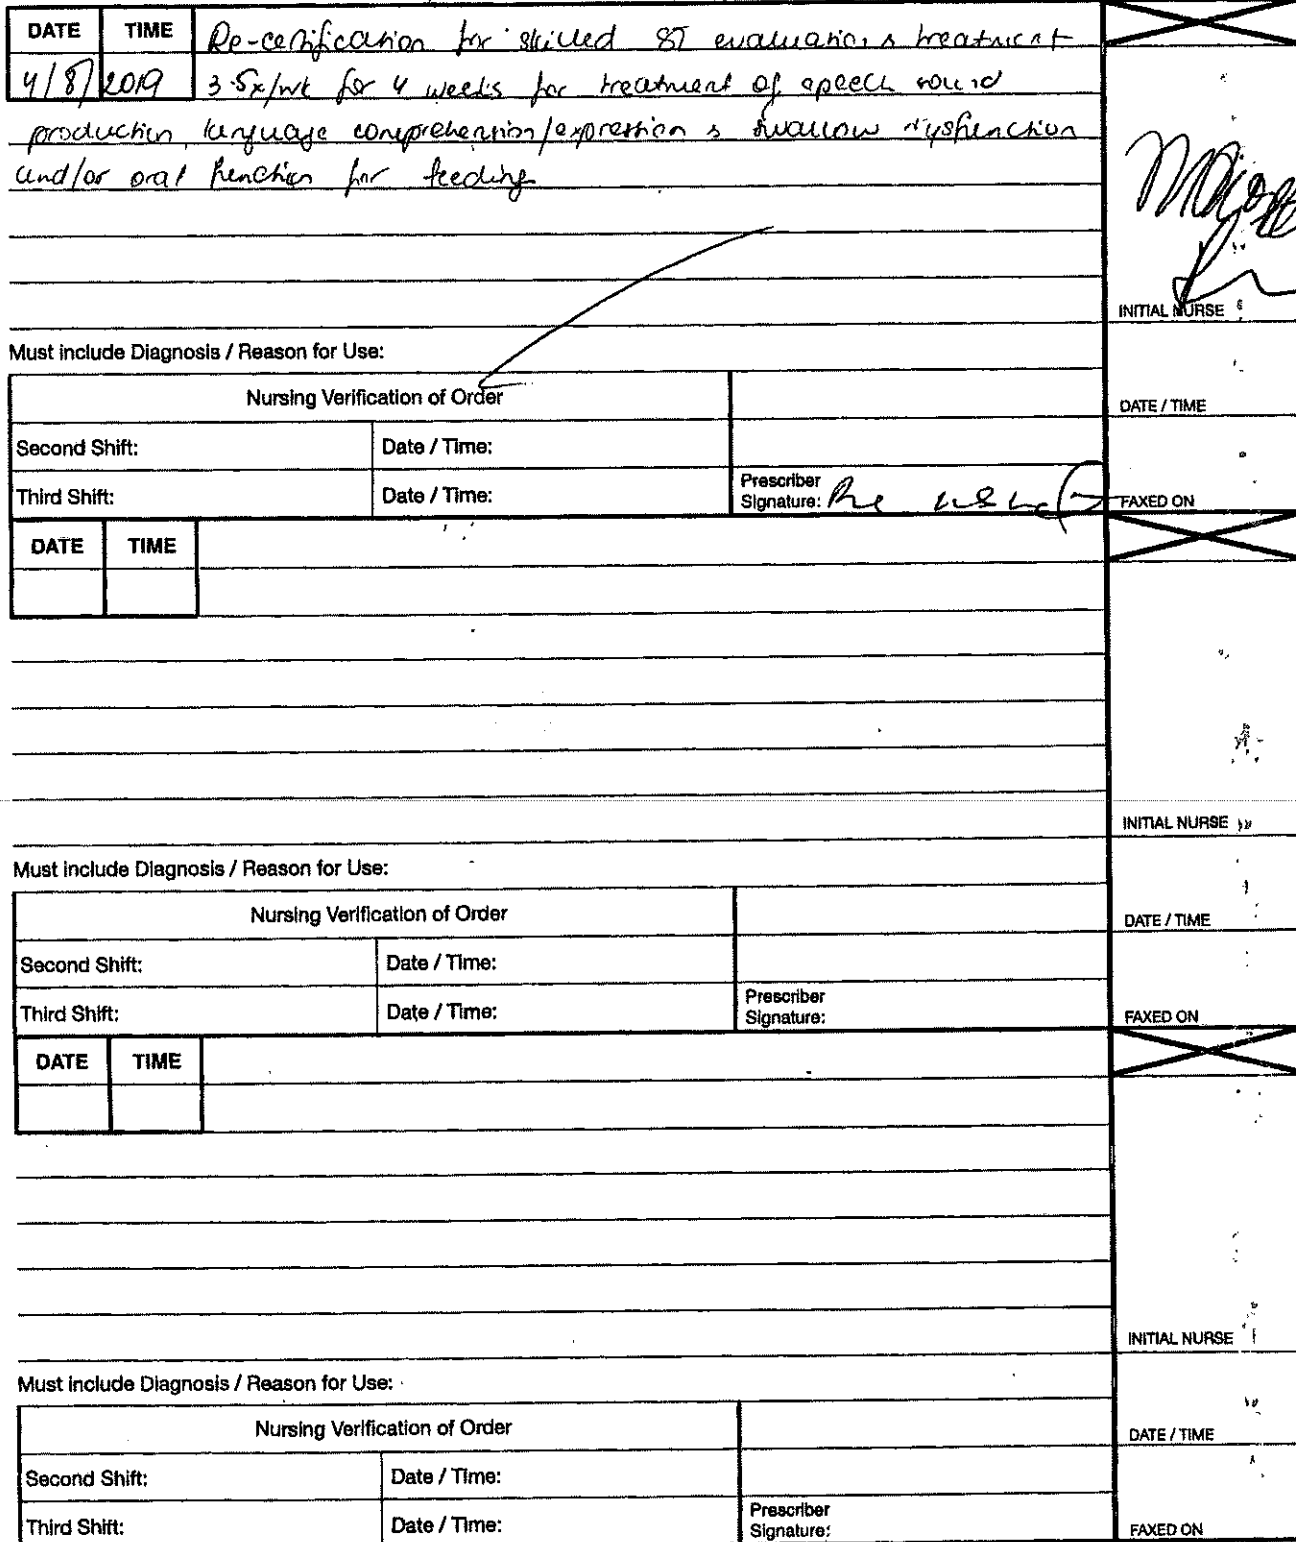 DATE TIME Re-certification for skilled ST evaluation & treatment
4/8/ 2019 3-5x/wk for 4 weeks for treatment of speech sound
production, language comprehension/expression & swallow dysfunction
and/or oral function for feeding
INITIAL NURSE
Must include Diagnosis / Reason for Use:
Nursing Verification of Order
DATE / TIME
Second Shift: Date / Time:
Third Shift: Date / Time: Prescriber Signature: FAXED ON
DATE TIME
INITIAL NURSE
Must include Diagnosis / Reason for Use:
Nursing Verification of Order
DATE / TIME
Second Shift: Date / Time:
Third Shift: Date / Time: Prescriber Signature: FAXED ON
DATE TIME
INITIAL NURSE
Must include Diagnosis / Reason for Use:
Nursing Verification of Order
DATE / TIME
Second Shift: Date / Time:
Third Shift: Date / Time: Prescriber Signature: FAXED ON